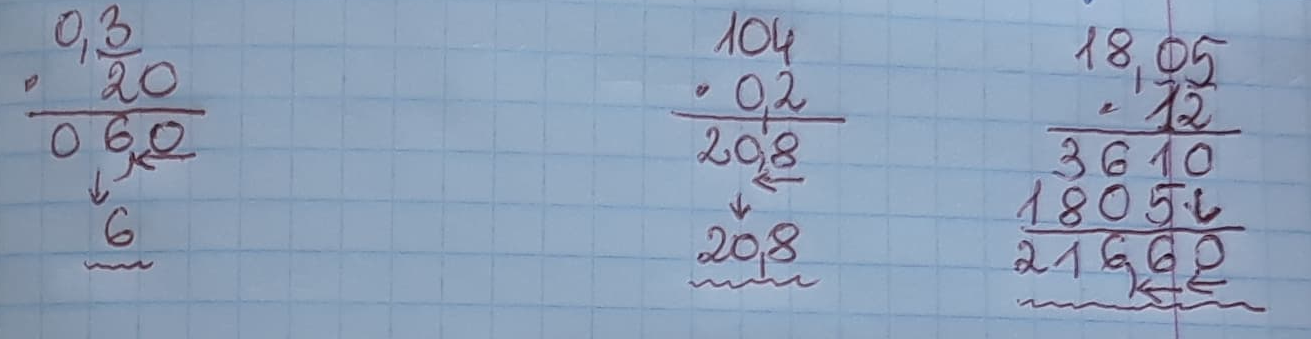 0,3
· 20
0 6,0
6
104
· 0,2
20,8
20,8
18,05
· 12
3610
1805
216,60